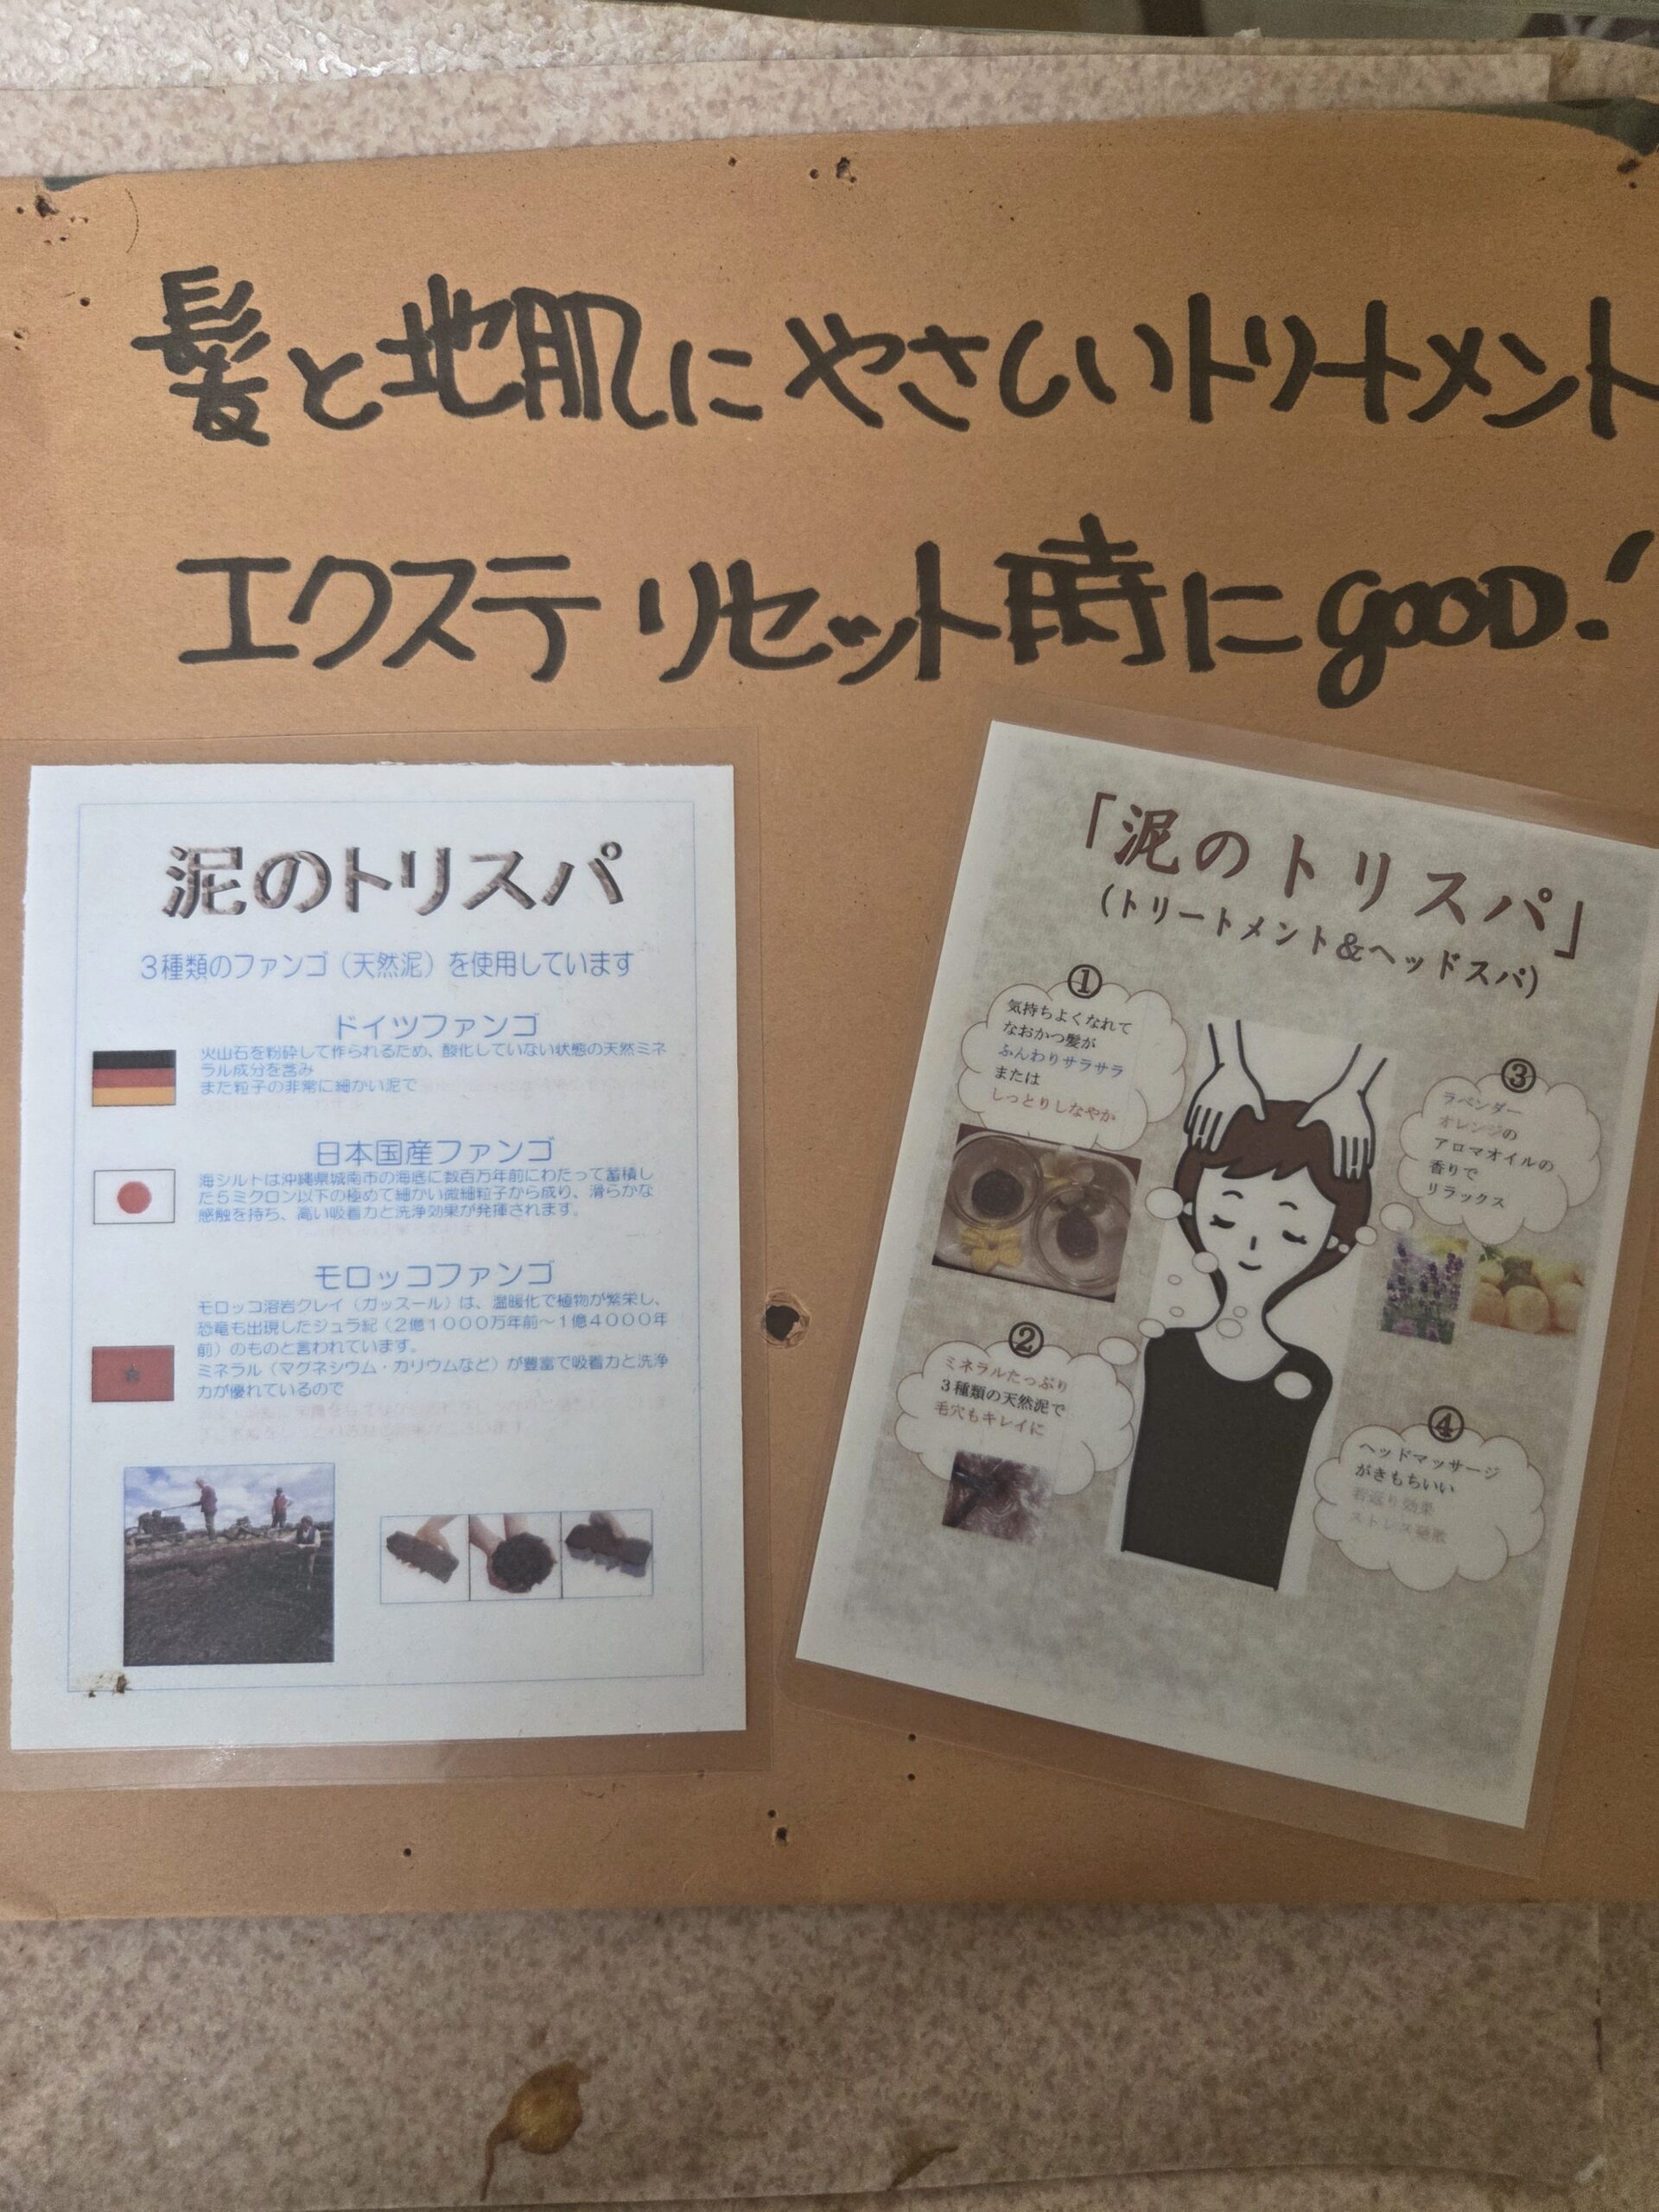 髪と地肌にやさしいトリートメント
エクステリセット時にgooD.!
泥のトリスパ
3種類のファンゴ（天然泥）を使用しています
ドイツファンゴ
火山石を粉砕して作られるため、酸化していない状態の天然ミネ
ラル成分を含み
また粒子の非常に細かい泥で
日本国産ファンゴ
海シルトは沖縄県城南市の海底に数百万年前にわたって蓄積し
た5ミクロン以下の極めて細かい微細粒子から成り、滑らかな
感触を持ち、高い吸着力と洗浄効果が発揮されます。
モロッコファンゴ
モロッコ溶岩クレイ（ガッスール）は、温暖化で植物が繁栄し、
恐竜も出現したジュラ紀（2億1000万年前～1億4000年
前）のものと言われています。
ミネラル（マグネシウム・カリウムなど）が豊富で吸着力と洗浄
力が優れているので
「泥のトリスパ」
(トリートメント&ヘッドスパ)
①
気持ちよくなれて
なおかつ髪が
ふんわりサラサラ
または
しっとりしなやか
②
ミネラルたっぷり
3種類の天然泥で
毛穴もキレイに
③
ラベンダー
オレンジの
アロマオイルの
香りで
リラックス
④
ヘッドマッサージ
がきもちいい
若返り効果
ストレス発散